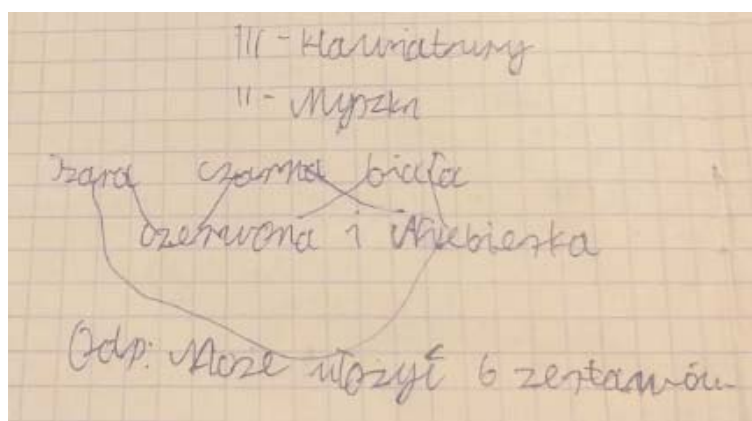 III - Klawiatury
II - Myszki
szara czarna biała
czerwona i Niebieska
Odp: Może ułożyć 6 zestawów